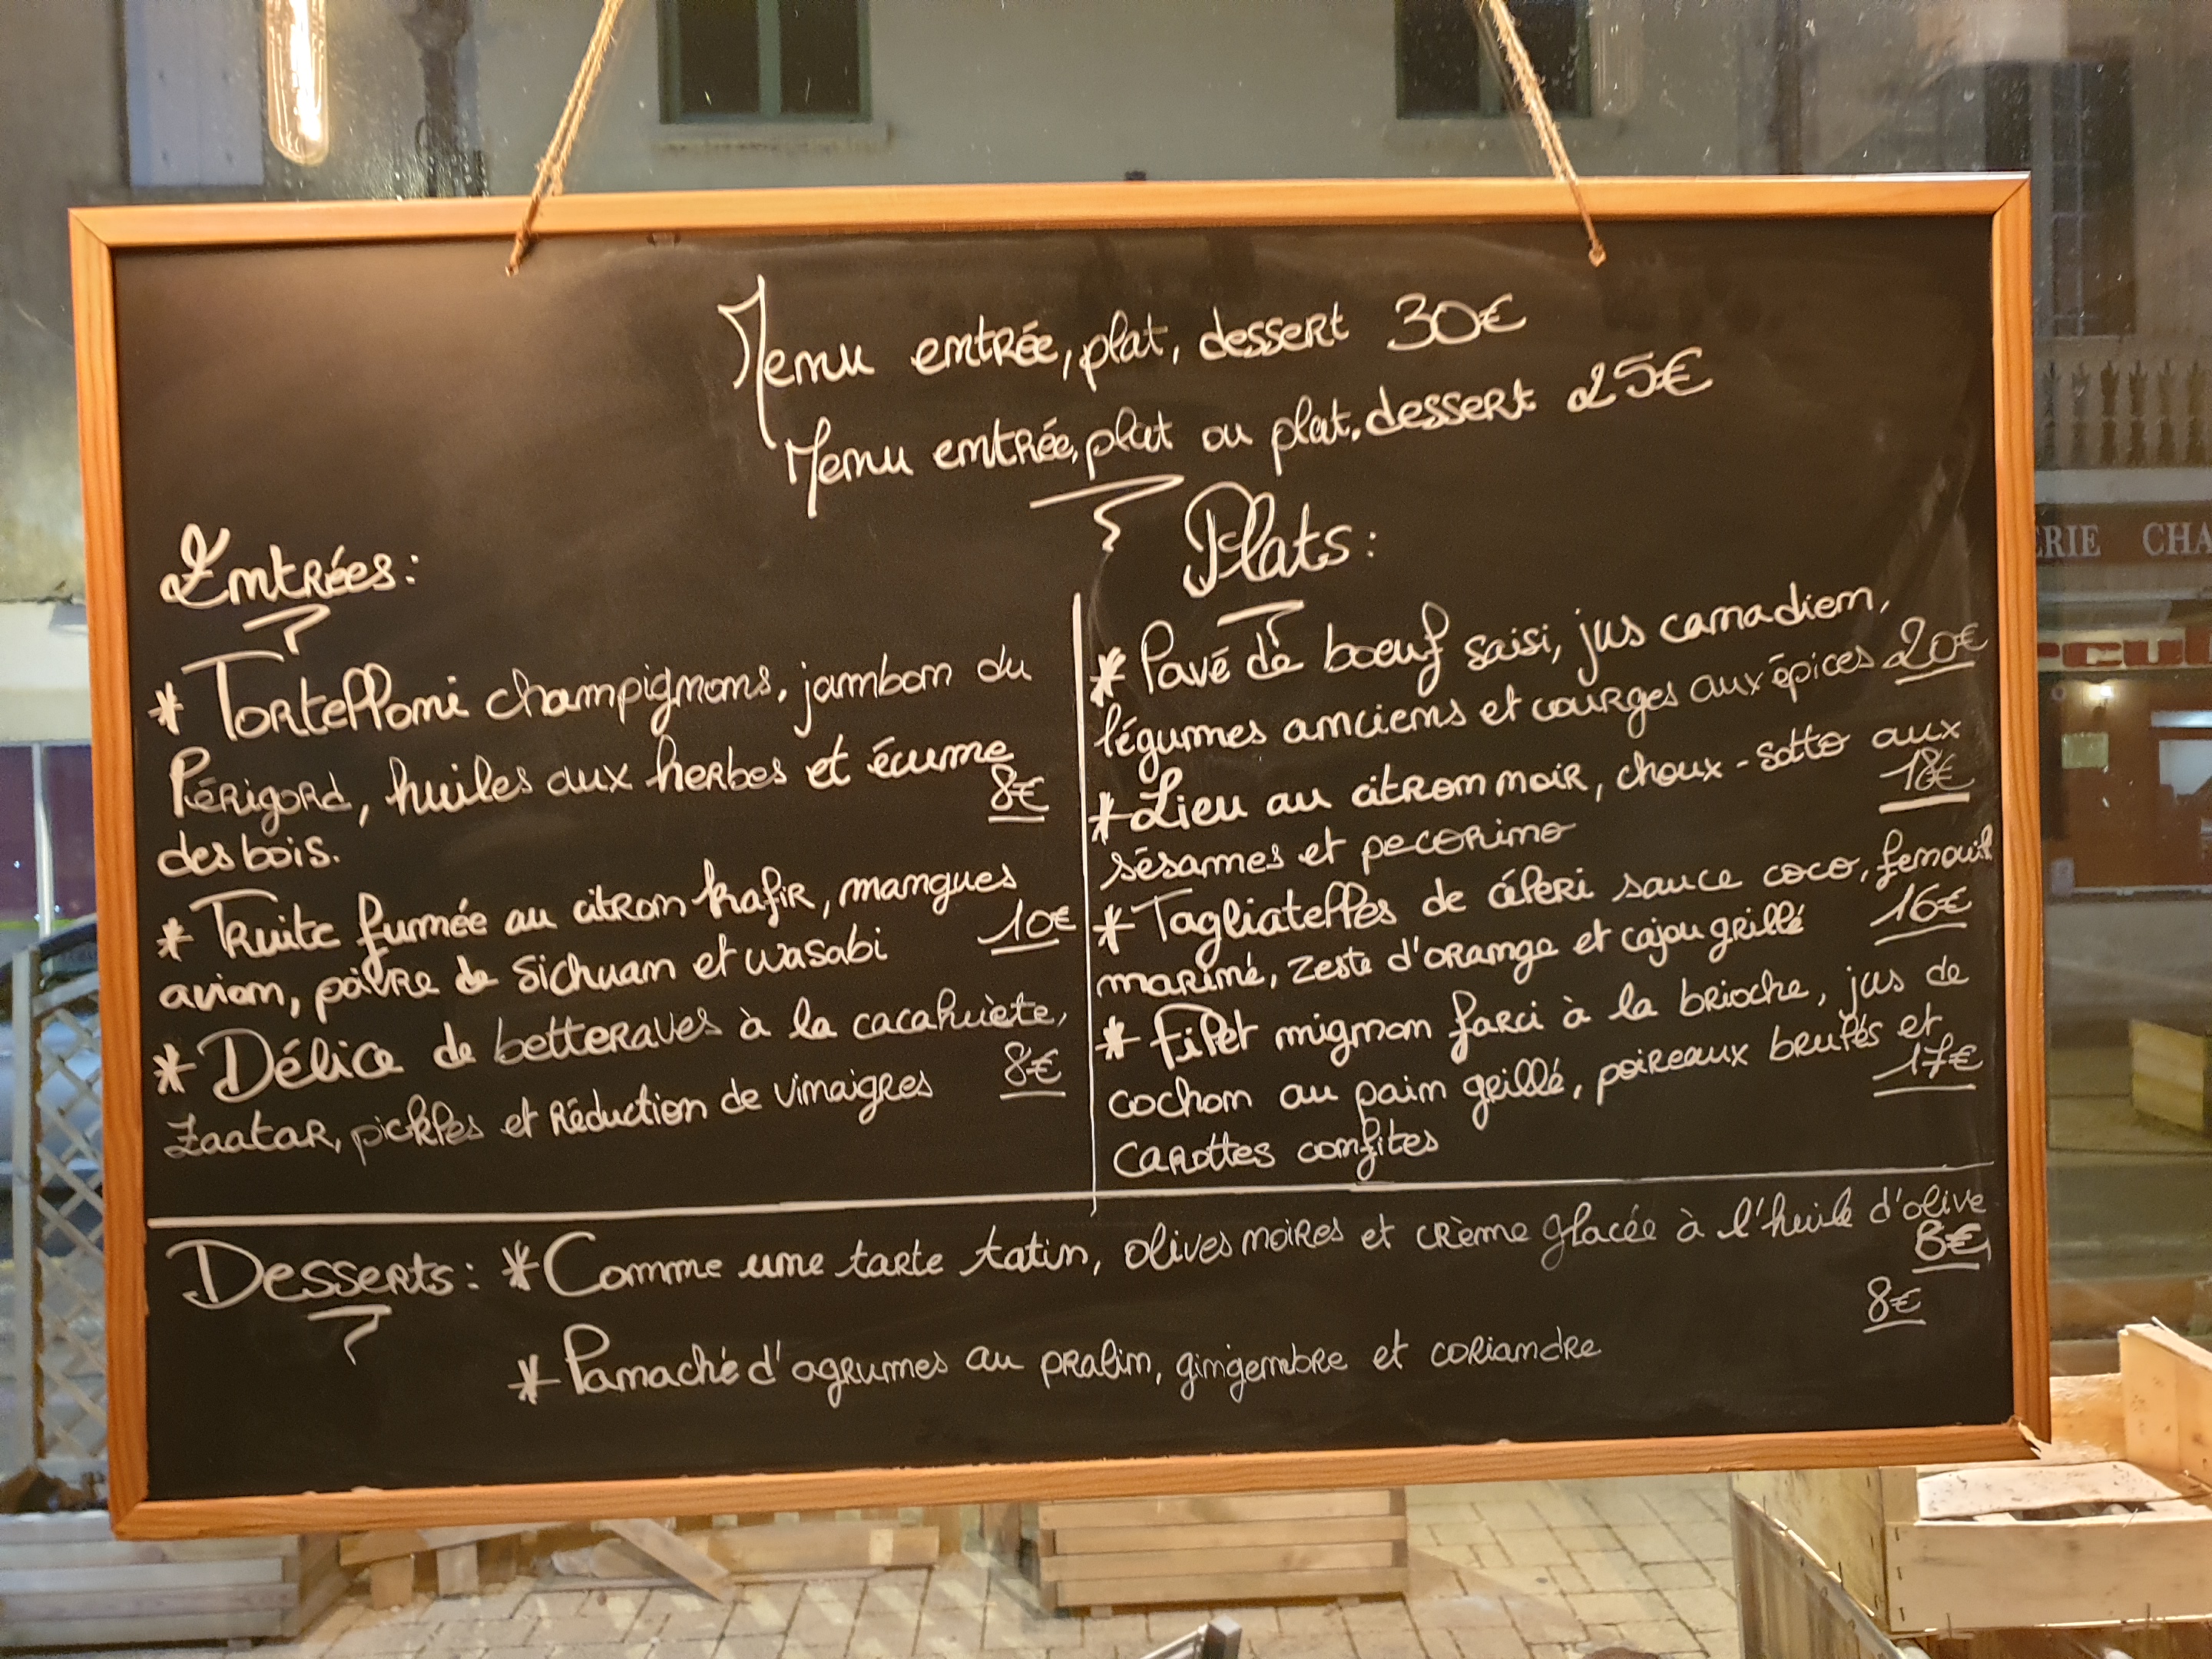 Menu entrée, plat, dessert 30€
Menu entrée, plat ou plat, dessert 25€
Entrées:
* Tortelloni champignons, jambon du
Périgord, huiles aux herbes et écume
8€
des bois.
* Truite fumée au citron kafir, mangues
10€
avion, poivre de Sichuan et wasabi
* Délice de betteraves à la cacahuète,
8€
Zaatar, pickles et Réduction de vinaigres
Plats:
* Pavé de boeuf saisi, jus canadien,
légumes anciens et courges aux épices 20€
* Lieu au citron noir, choux-sotto aux
18€
sésames et pecorino
* Tagliatelles de céleri sauce coco, fenouil
16€
mariné, zeste d'orange et cajou grillé
* Filet mignon farci à la brioche, jus de
cochon au pain grillé, poireaux brulés et
17€
carottes confites
Desserts: * Comme une tarte tatin, olives noires et crème glacée à l'huile d'olive
8€
8€
* Panaché d'agrumes au pralin, gingembre et coriandre
ERIE CHA